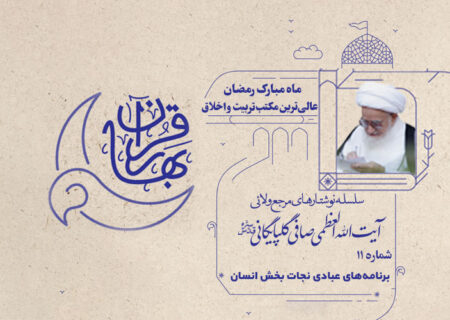 ماه مبارک رمضان
عالی‌ترین مکتب تربیت و اخلاق
بهار قرآن
سلسله نوشتارهای مرجع ولائی
آیت الله العظمی صافی گلپایگانی
شماره ۱۱
برنامه‌های عبادی نجات بخش انسان